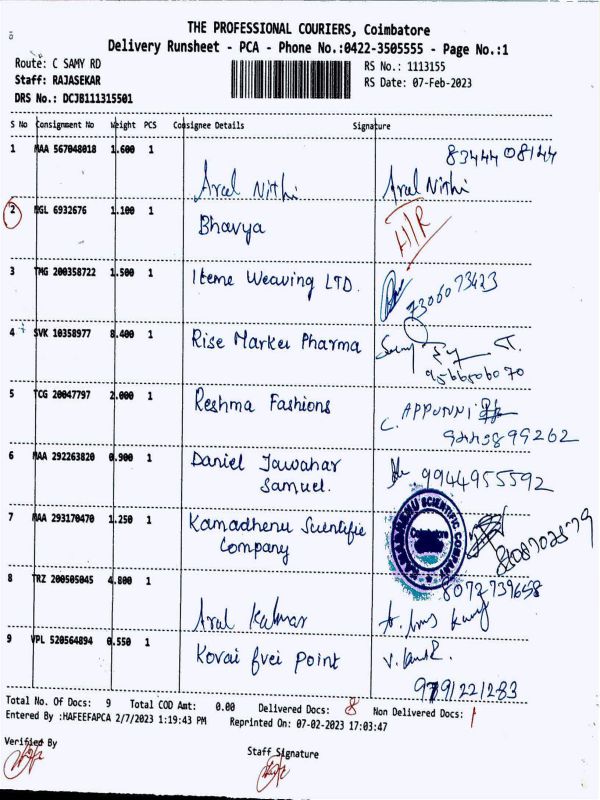 THE PROFESSIONAL COURIERS, Coimbatore
Delivery Runsheet - PCA - Phone No.:0422-3505555 - Page No.:1
Route: C SAMY RD
RS No.: 1113155
Staff: RAJASEKAR
RS Date: 07-Feb-2023
DRS No.: DCJB111315501
S No Consignment No Weight PCS Consignee Details Signature
1 MAA 567048018 1.600 1
83444 08144
Arul Nithi Arul Nithi
2 NGL 6932676 1.100 1 Bhavya H/R
3 TMG 200358722 1.500 1 Iteme Weaving LTD. 7306073423
4 SVK 10358977 8.400 1 Rise Market Pharma
9566606070
5 TCG 20047797 2.000 1 Reshma Fashions C. APPUNNI
6 MAA 292263820 0.900 1 Daniel Jawahar 9944955592
Samuel.
7 MAA 293170470 1.250 1 Kamadhenu Scientific
Company
KAMADHENU SCIENTIFIC COMPANY
Coimbatore
8 TRZ 200505045 4.800 1 8072739658
Arul Kumar
9 VPL 520564894 0.550 1 Kovai fvei Point
9791221283
Total No. Of Docs: 9 Total COD Amt: 0.00 Delivered Docs: 8 Non Delivered Docs: 1
Entered By :HAFEEFAPCA 2/7/2023 1:19:43 PM Reprinted On: 07-02-2023 17:03:47
Verified By
Staff Signature